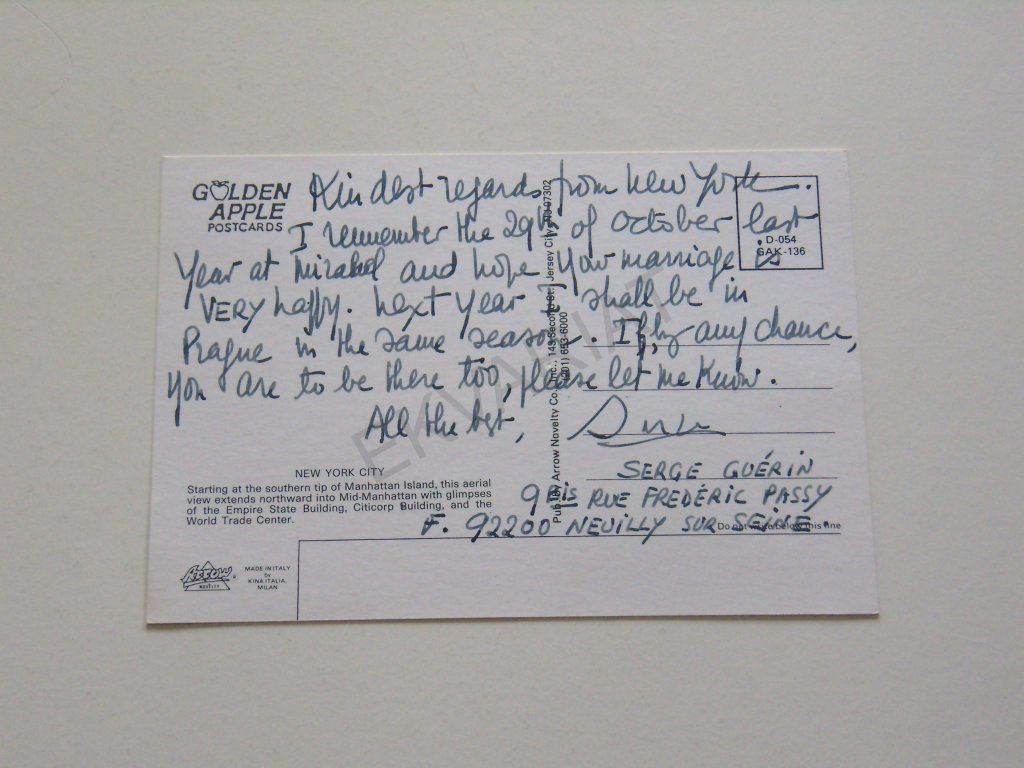 GOLDEN
APPLE
POSTCARDS
Kindest regards from New York.
I remember the 29th of October last
D-054
GAK-136
Year at and hope your marriage is
VERY happy. Next year I shall be in
Prague in the same season. If, by any chance,
You are to be there too, please let me know.
All the best,
SERGE GUÉRIN
9 Bis RUE FREDÉRIC PASSY
F. 92200 NEUILLY SUR SEINE.
Do not write below this line
NEW YORK CITY
Starting at the southern tip of Manhattan Island, this aerial
view extends northward into Mid-Manhattan with glimpses
of the Empire State Building, Citicorp Building, and the
World Trade Center.
ARROW
MADE IN ITALY
by
KINA ITALIA
MILAN
Pub. by Arrow Novelty Co., Inc., 143 Second St., Jersey City, 07302
(201) 653-6000
EKVARIAT